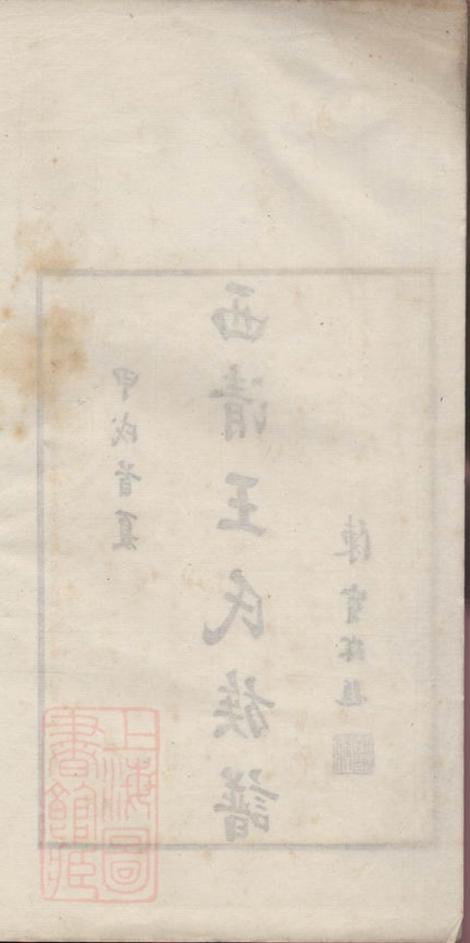 甲戌首夏
西清王氏族譜
陳寶琛題
上海圖
書館藏